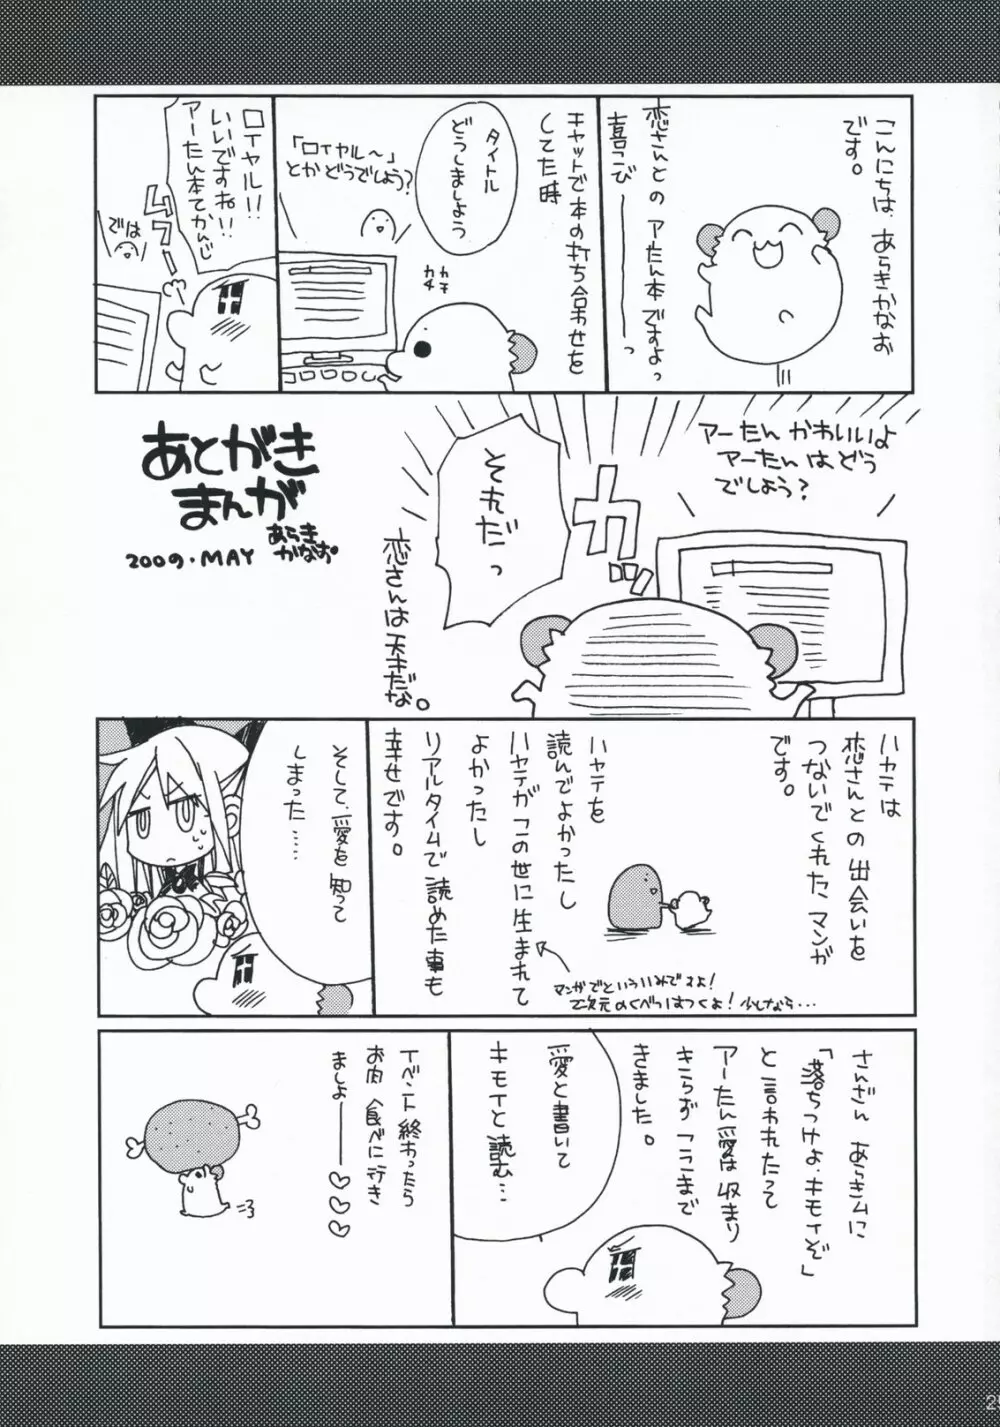 こんにちは、あらきかなお
です。
恋さんとの アたん本ですよっ
喜こび────っ
チャットで本の打ち合わせを
してた時
タイトル
どうしましよう
「ロイヤル〜」
とか どうでしよう?
カキ
カタ
ロイヤル!!
いいですね!!
アーたん本てかんじ
ムフー
では
アーたん かわいいよ
アーたん はどう
でしよう?
カッ
それだっ
恋さんは 天才だな。
あとがき
まんが
あらき
かなお。
2009.MAY
ハヤテは
恋さんとの 出会いを
つないでくれた マンガ
です。
ハヤテを
読んでよかったし
ハヤテが この世に生まれて
よかったし
リアルタイムで 読めた事も
幸せです。
マンガ でといういみで すよ!
2次元 のくべつはつくよ! 少しなら・・・
そして、愛を 知って
しまった……
さんざん あらきムに
「落ちつけよ・キモイぞ」
と 言われたって
アーたん 愛は 収まり
きらず ここまで
きました。
愛と書いて
キモイと 読む…
イベント 終わったら
お肉 食べに行き
ましょ───♡♡♡